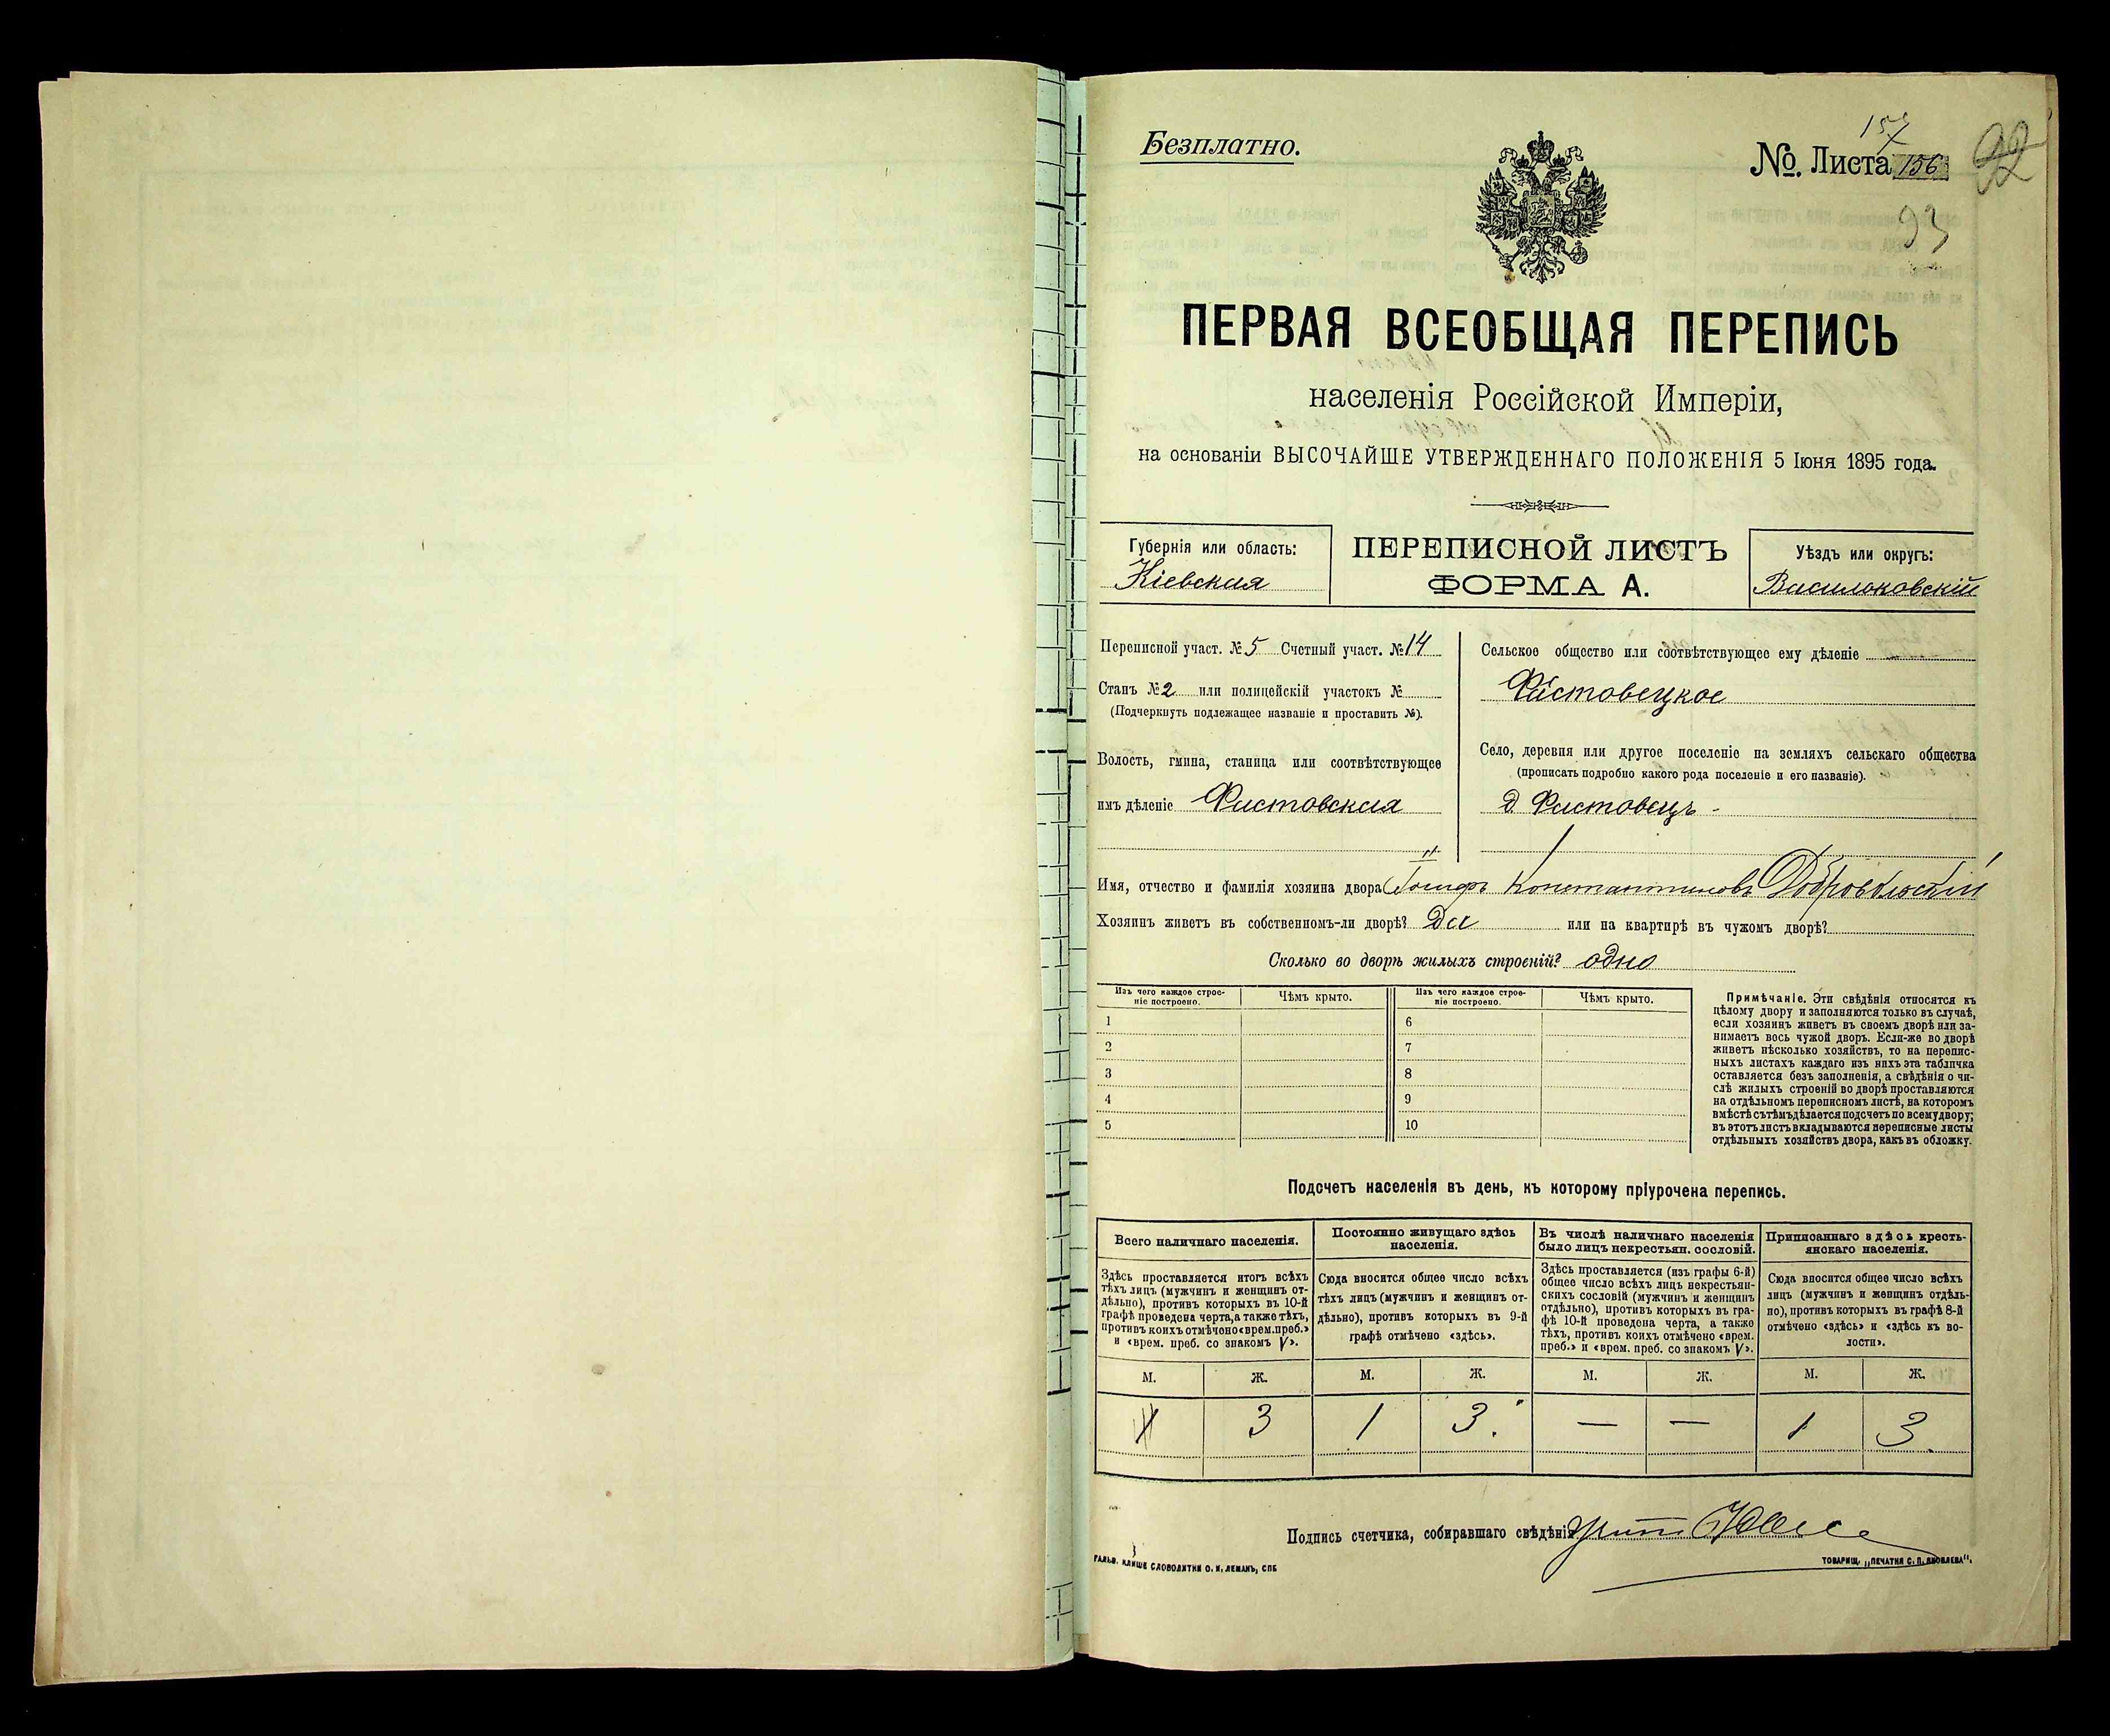 Безплатно.
157
№. Листа 156
92
93
ПЕРВАЯ ВСЕОБЩАЯ ПЕРЕПИСЬ
населенія Россійской Имперіи,
на основаніи ВЫСОЧАЙШЕ УТВЕРЖДЕННАГО ПОЛОЖЕНІЯ 5 Іюня 1895 года.
Губернія или область:
Кіевская
ПЕРЕПИСНОЙ ЛИСТЪ
ФОРМА А.
Уѣздъ или округъ:
Васильковскій
Переписной участ. № 5 Счетный участ. № 14
Станъ № 2 или полицейскій участокъ №
(Подчеркнуть подлежащее названіе и проставить №).
Волость, гмина, станица или соотвѣтствующее
имъ дѣленіе Фастовская
Сельское общество или соотвѣтствующее ему дѣленіе
Фастовецкое
Село, деревня или другое поселеніе на земляхъ сельскаго общества
(прописать подробно какого рода поселеніе и его названіе).
д. Фастовецъ -
Имя, отчество и фамилія хозяина двора Константиновъ Добровольскій
Хозяинъ живетъ въ собственномъ-ли дворѣ? Да или на квартирѣ въ чужомъ дворѣ?
Сколько во дворѣ жилыхъ строеній? одно
Изъ чего каждое строе-
ніе построено.
Чѣмъ крыто.
Изъ чего каждое строе-
ніе построено.
Чѣмъ крыто.
1
2
3
4
5
6
7
8
9
10
Примѣчаніе. Эти свѣдѣнія относятся къ
цѣлому двору и заполняются только въ случаѣ,
если хозяинъ живетъ въ своемъ дворѣ или за-
нимаетъ весь чужой дворъ. Если-же во дворѣ
живетъ нѣсколько хозяйствъ, то на перепис-
ныхъ листахъ каждаго изъ нихъ эта табличка
оставляется безъ заполненія, а свѣдѣнія о чи-
слѣ жилыхъ строеній во дворѣ проставляются
на отдѣльномъ переписномъ листѣ, на которомъ
вмѣстѣ съ тѣмъ дѣлается подсчетъ по всему двору;
въ этотъ листъ вкладываются переписные листы
отдѣльныхъ хозяйствъ двора, какъ въ обложку.
Подсчетъ населенія въ день, къ которому пріурочена перепись.
Всего наличнаго населенія.
Постоянно живущаго здѣсь
населенія.
Въ числѣ наличнаго населенія
было лицъ некрестьян. сословій.
Приписаннаго здѣсь кресть-
янскаго населенія.
Здѣсь проставляется итогъ всѣхъ
тѣхъ лицъ (мужчинъ и женщинъ от-
дѣльно), противъ которыхъ въ 10-й
графѣ проведена черта, а также тѣхъ,
противъ коихъ отмѣчено «врем. преб.»
и «врем. преб. со знакомъ V».
Сюда вносится общее число всѣхъ
тѣхъ лицъ (мужчинъ и женщинъ от-
дѣльно), противъ которыхъ въ 9-й
графѣ отмѣчено «здѣсь».
Здѣсь проставляется (изъ графы 6-й)
общее число всѣхъ лицъ некрестьян-
скихъ сословій (мужчинъ и женщинъ
отдѣльно), противъ которыхъ въ гра-
фѣ 10-й проведена черта, а также
тѣхъ, противъ коихъ отмѣчено «врем.
преб.» и «врем. преб. со знакомъ V».
Сюда вносится общее число всѣхъ
лицъ (мужчинъ и женщинъ отдѣль-
но), противъ которыхъ въ графѣ 8-й
отмѣчено «здѣсь» и «здѣсь къ во-
лости».
М. Ж. М. Ж. М. Ж. М. Ж.
3 1 3. — — 1 3.
Подпись счетчика, собиравшаго свѣдѣнія
ГАЛЬВ. КЛИШЕ СЛОВОЛИТНИ О. И. ЛЕМАНЪ, СПБ
ТОВАРИЩ. „ПЕЧАТНЯ С. П. ЯКОВЛЕВА“.